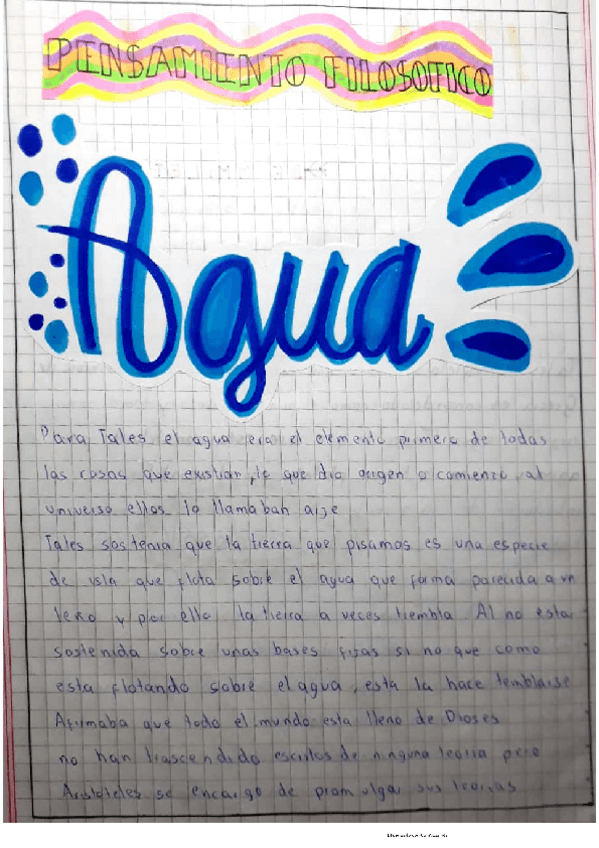 PENSAMIENTO FILOSOFICO
Agua
Para Tales el agua era el elemento primero de todas
las cosas que existian, le que dio origen o comienzo al
universo ellos lo llamaban arje
Tales sostenia que la tierra que pisamos es una especie
de isla que flota sobre el agua que forma parecida a un
leño y por ello la tierra a veces tiembla. Al no estar
sostenida sobre unas bases fijas si no que como
esta flotando sobre el agua, esta la hace temblarse
Afirmaba que todo el mundo esta lleno de Dioses
no han trascendido escritos de ninguna teoria pero
Aristoteles se encargo de promulgar sus teorias